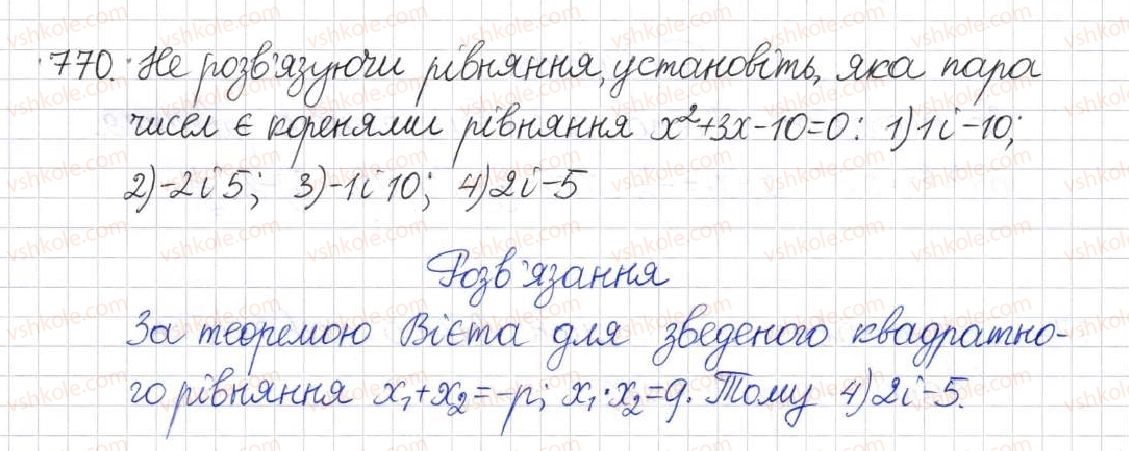 770. Не розв'язуючи рівняння, установіть, яка пара
чисел є коренями рівняння x²+3x-10=0: 1) 1 і -10;
2) -2 і 5; 3) -1 і 10; 4) 2 і -5
Розв'язання
За теоремою Вієта для зведеного квадратно-
го рівняння x₁+x₂=-p; x₁·x₂=q. Тому 4) 2 і -5.
vshkole.com